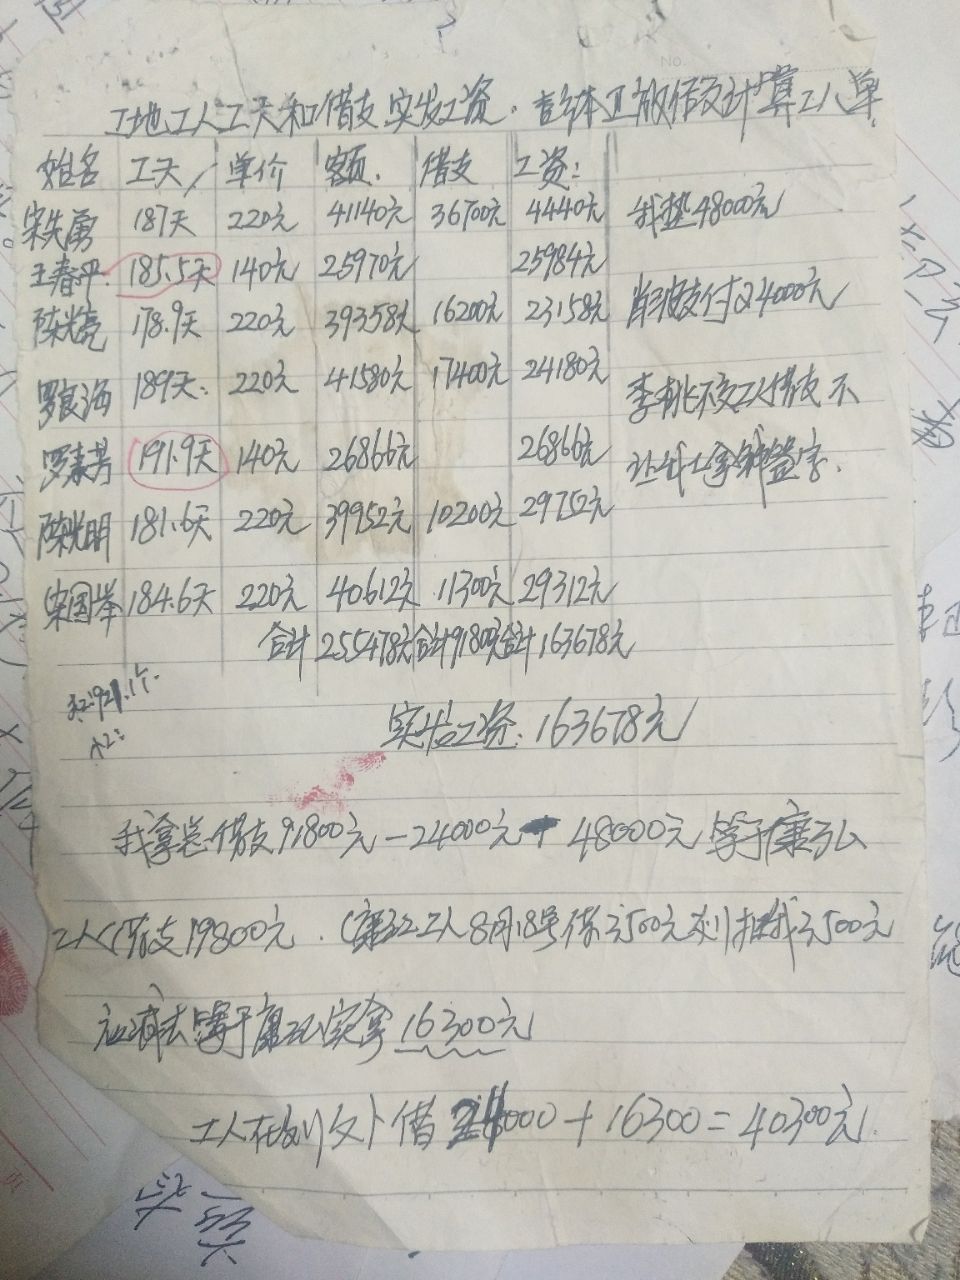 工地工人工天和借支实发工资. 放借支计算工人单
姓名 工天 单价 客页. 借支 工资:
宋失勇 187天 220元 41140元 36700元 4440元 我垫48000元
王春平 185.5天 140元 25970元 25984元
陈光亮 178.9天 220元 39358元 16200元 23158元 支付24000元
罗良海 189天 220元 41580元 17400元 24180元 工人借支不
罗素芳 191.9天 140元 26866元 26866元 让 拿钱签字.
陈光明 181.6天 220元 39952元 10200元 29752元
宋国举 184.6天 220元 40612元 11300元 29312元
合计 255478元 合计91800元 合计 163678元
实发工资. 163678元
我拿总借支91800元 - 24000元 48000元 等于康
工人借支19800元. 工人8月18号借3500元 3500元
应减去等于康 实拿 16300元
工人在刘 借 24000 + 16300 = 40300元.